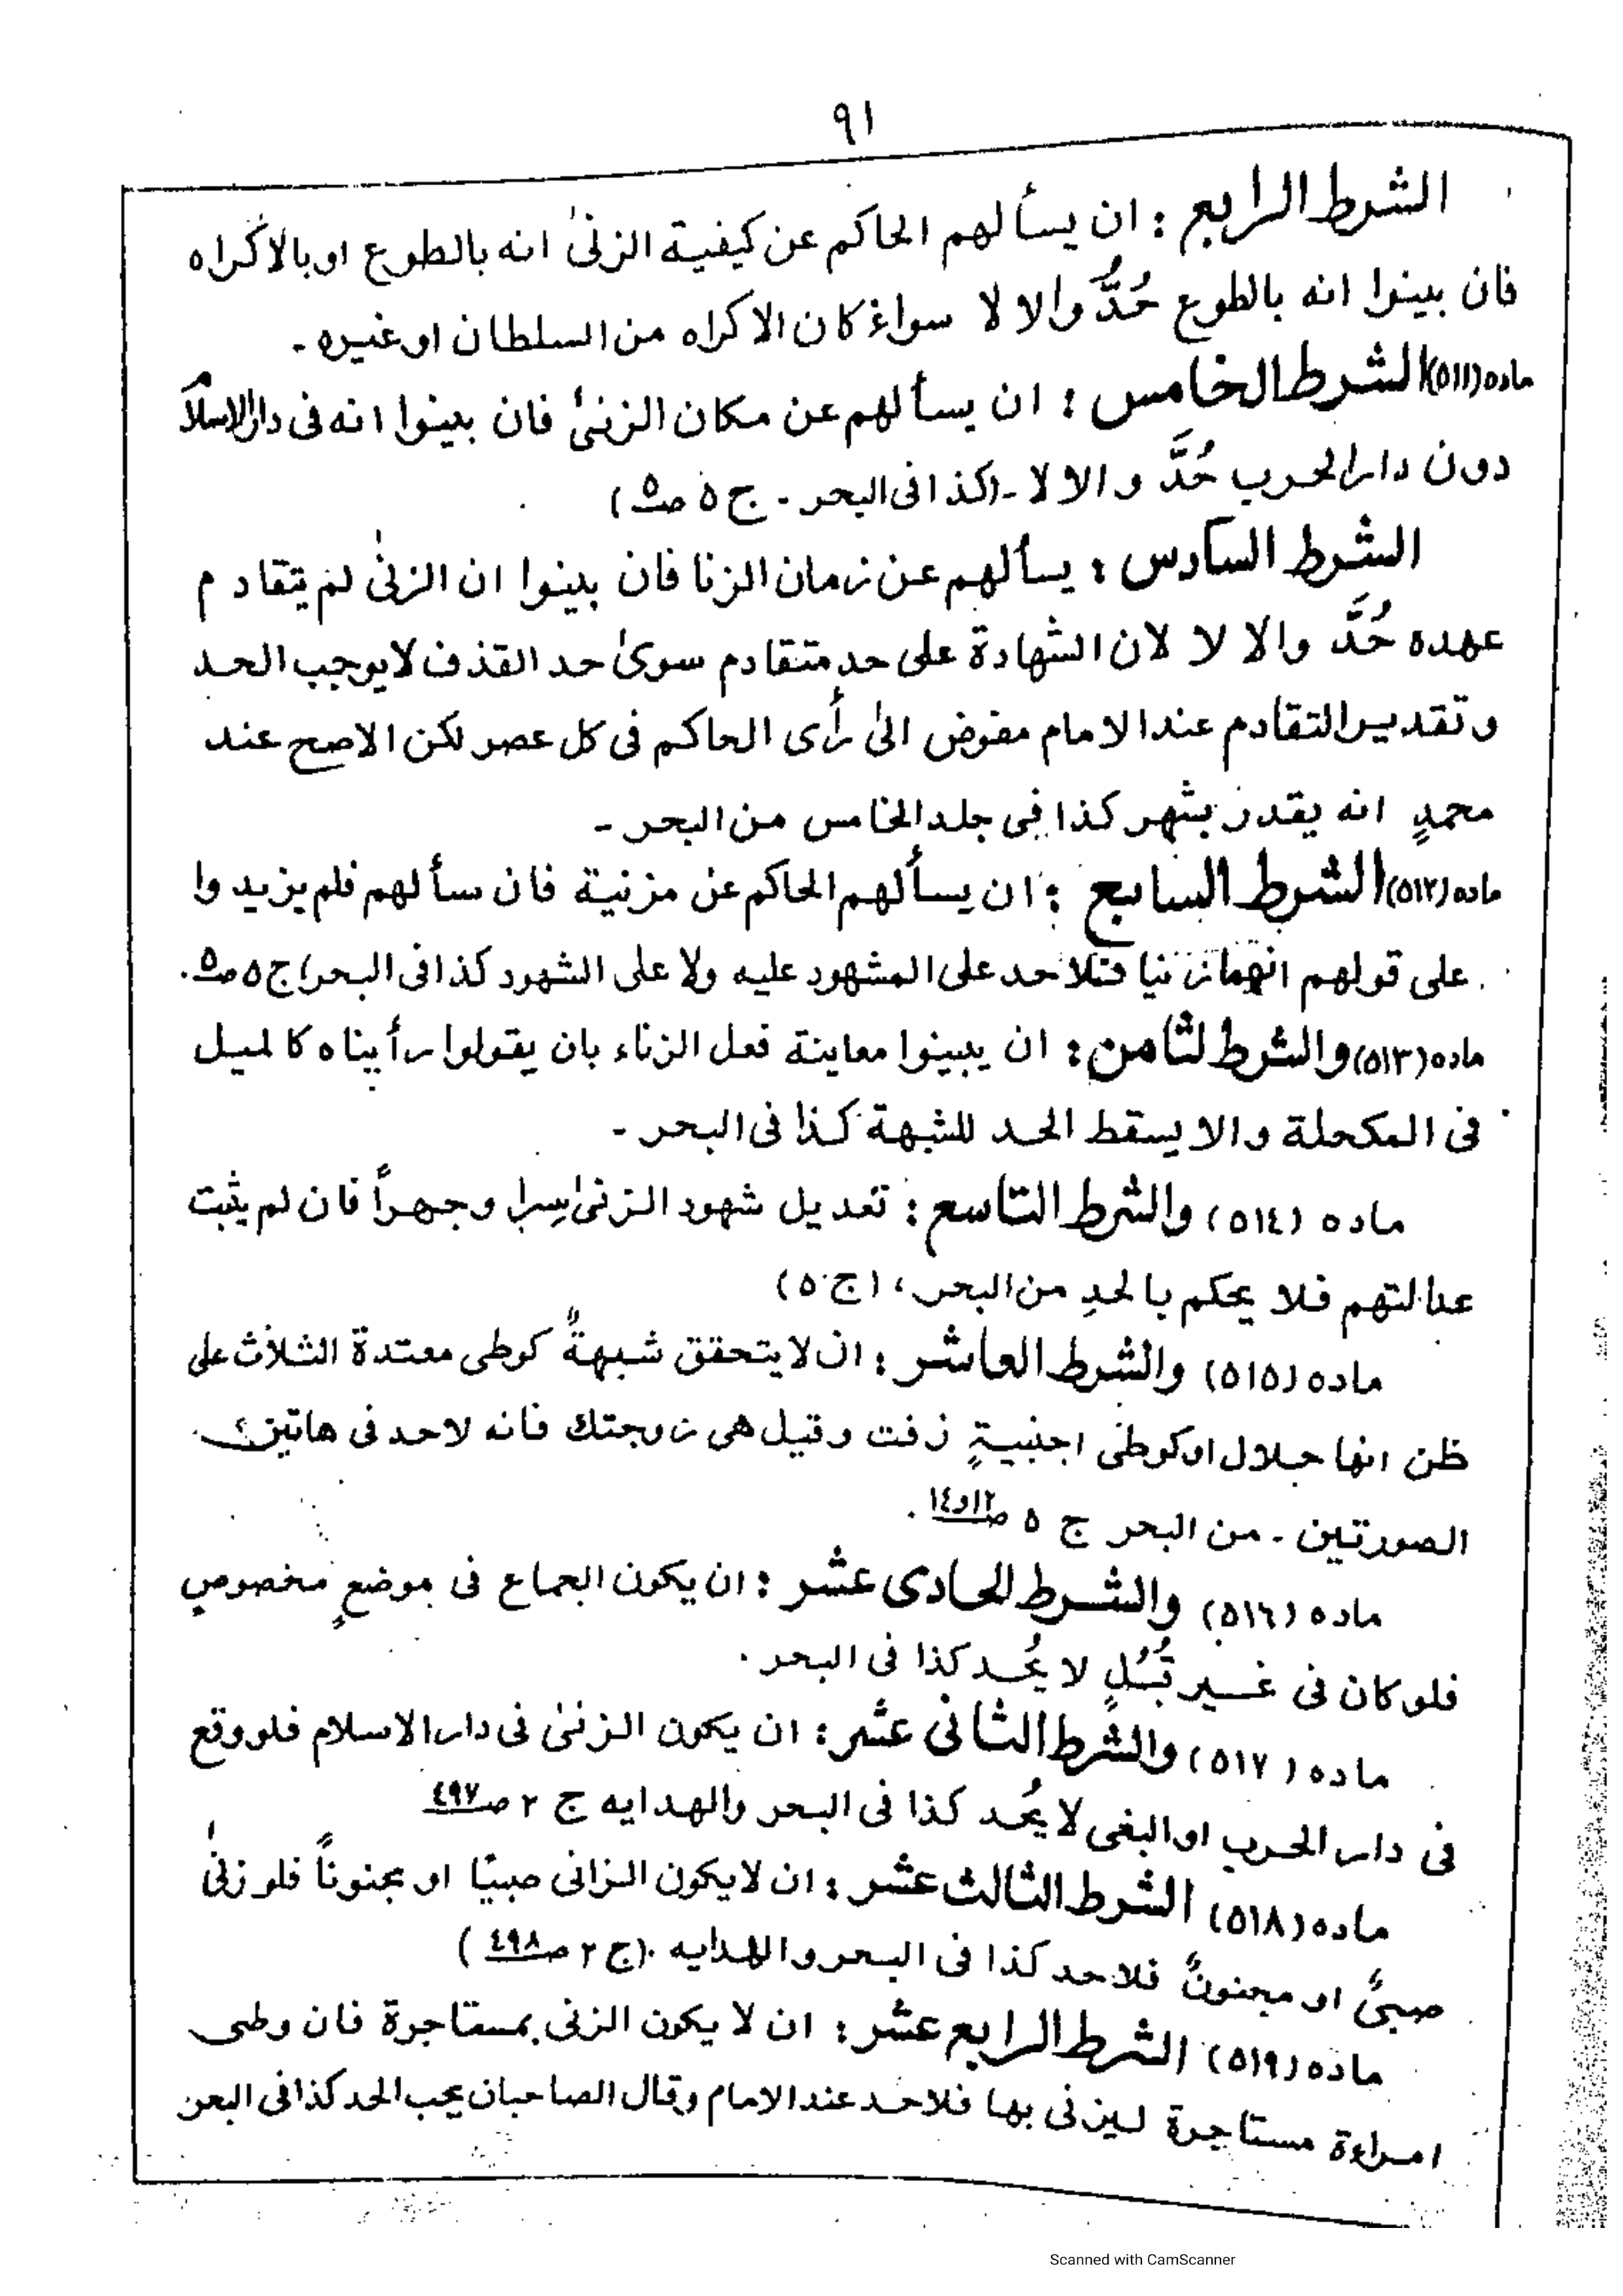 ٩١
الشرط الرابع : ان يسألهم الحاكم عن كيفية الزنىٰ انه بالطوع او بالاكراه
فان بينوا انه بالطوع حُدَّ والا لا سواءٌ كان الاكراه من السلطان او غيره -
ماده (٥١١) الشرط الخامس : ان يسألهم عن مكان الزنىٰ فان بينوا انه فى دار الاسلام
دون دار الحرب حُدَّ و الا لا - (كذا فى البحر - ج ٥ ص ٥)
الشرط السادس : يسألهم عن زمان الزنا فان بينوا ان الزنىٰ لم يتقادم
عهده حُدَّ والا لا لان الشهادة على حد متقادم سوىٰ حد القذف لا يوجب الحد
و تقدير التقادم عند الامام مفوض الىٰ رأى الحاكم فى كل عصر لكن الاصح عند
محمدٍ انه يقدر بشهر كذا فى جلد الخامس من البحر -
ماده (٥١٢) الشرط السابع : ان يسألهم الحاكم عن مزنية فان سألهم فلم يزيدوا
على قولهم انهما زنيا فلا حد على المشهود عليه ولا على الشهود كذا فى البحر (ج ٥ ص ٥.
ماده (٥١٣) والشرط لثامن : ان يبينوا معاينة فعل الزناء بان يقولوا رأيناه كالميل
فى المكحلة والا يسقط الحد للشبهة كذا فى البحر -
ماده (٥١٤) والشرط التاسع : تعديل شهود الزنىٰ سِرا وجهراً فان لم يثبت
عدالتهم فلا يحكم بالحدِ من البحر، (ج ٥)
ماده (٥١٥) والشرط العاشر : ان لا يتحقق شبهةٌ كوطى معتدة الثلاث على
ظن انها حلال او كوطى اجنبيةٍ زفت وقيل هى زوجتك فانه لاحد فى هاتين
الصورتين - من البحر ج ٥ ص ١٢ و ١٤ .
ماده (٥١٦) والشرط الحادى عشر : ان يكون الجماع فى موضعٍ مخصوصٍ
فلو كان فى غير قُبُلٍ لا يُحد كذا فى البحر .
ماده (٥١٧) والشرط الثانى عشر : ان يكون الزنىٰ فى دار الاسلام فلو وقع
فى دار الحرب او البغى لا يُحد كذا فى البحر والهدايه ج ٢ ص ٤٩٧
ماده (٥١٨) الشرط الثالث عشر : ان لا يكون الزانى صبيًا او مجنوناً فلو زنىٰ
صبىٌ او مجنونٌ فلا حد كذا فى البحر والهدايه . (ج ٢ ص ٤٩٨)
ماده (٥١٩) الشرط الرابع عشر : ان لا يكون الزنى بمستاجرة فان وطى
امراءة مستاجرة ليزنى بها فلا حد عند الامام وقال الصاحبان يجب الحد كذا فى البحر
Scanned with CamScanner